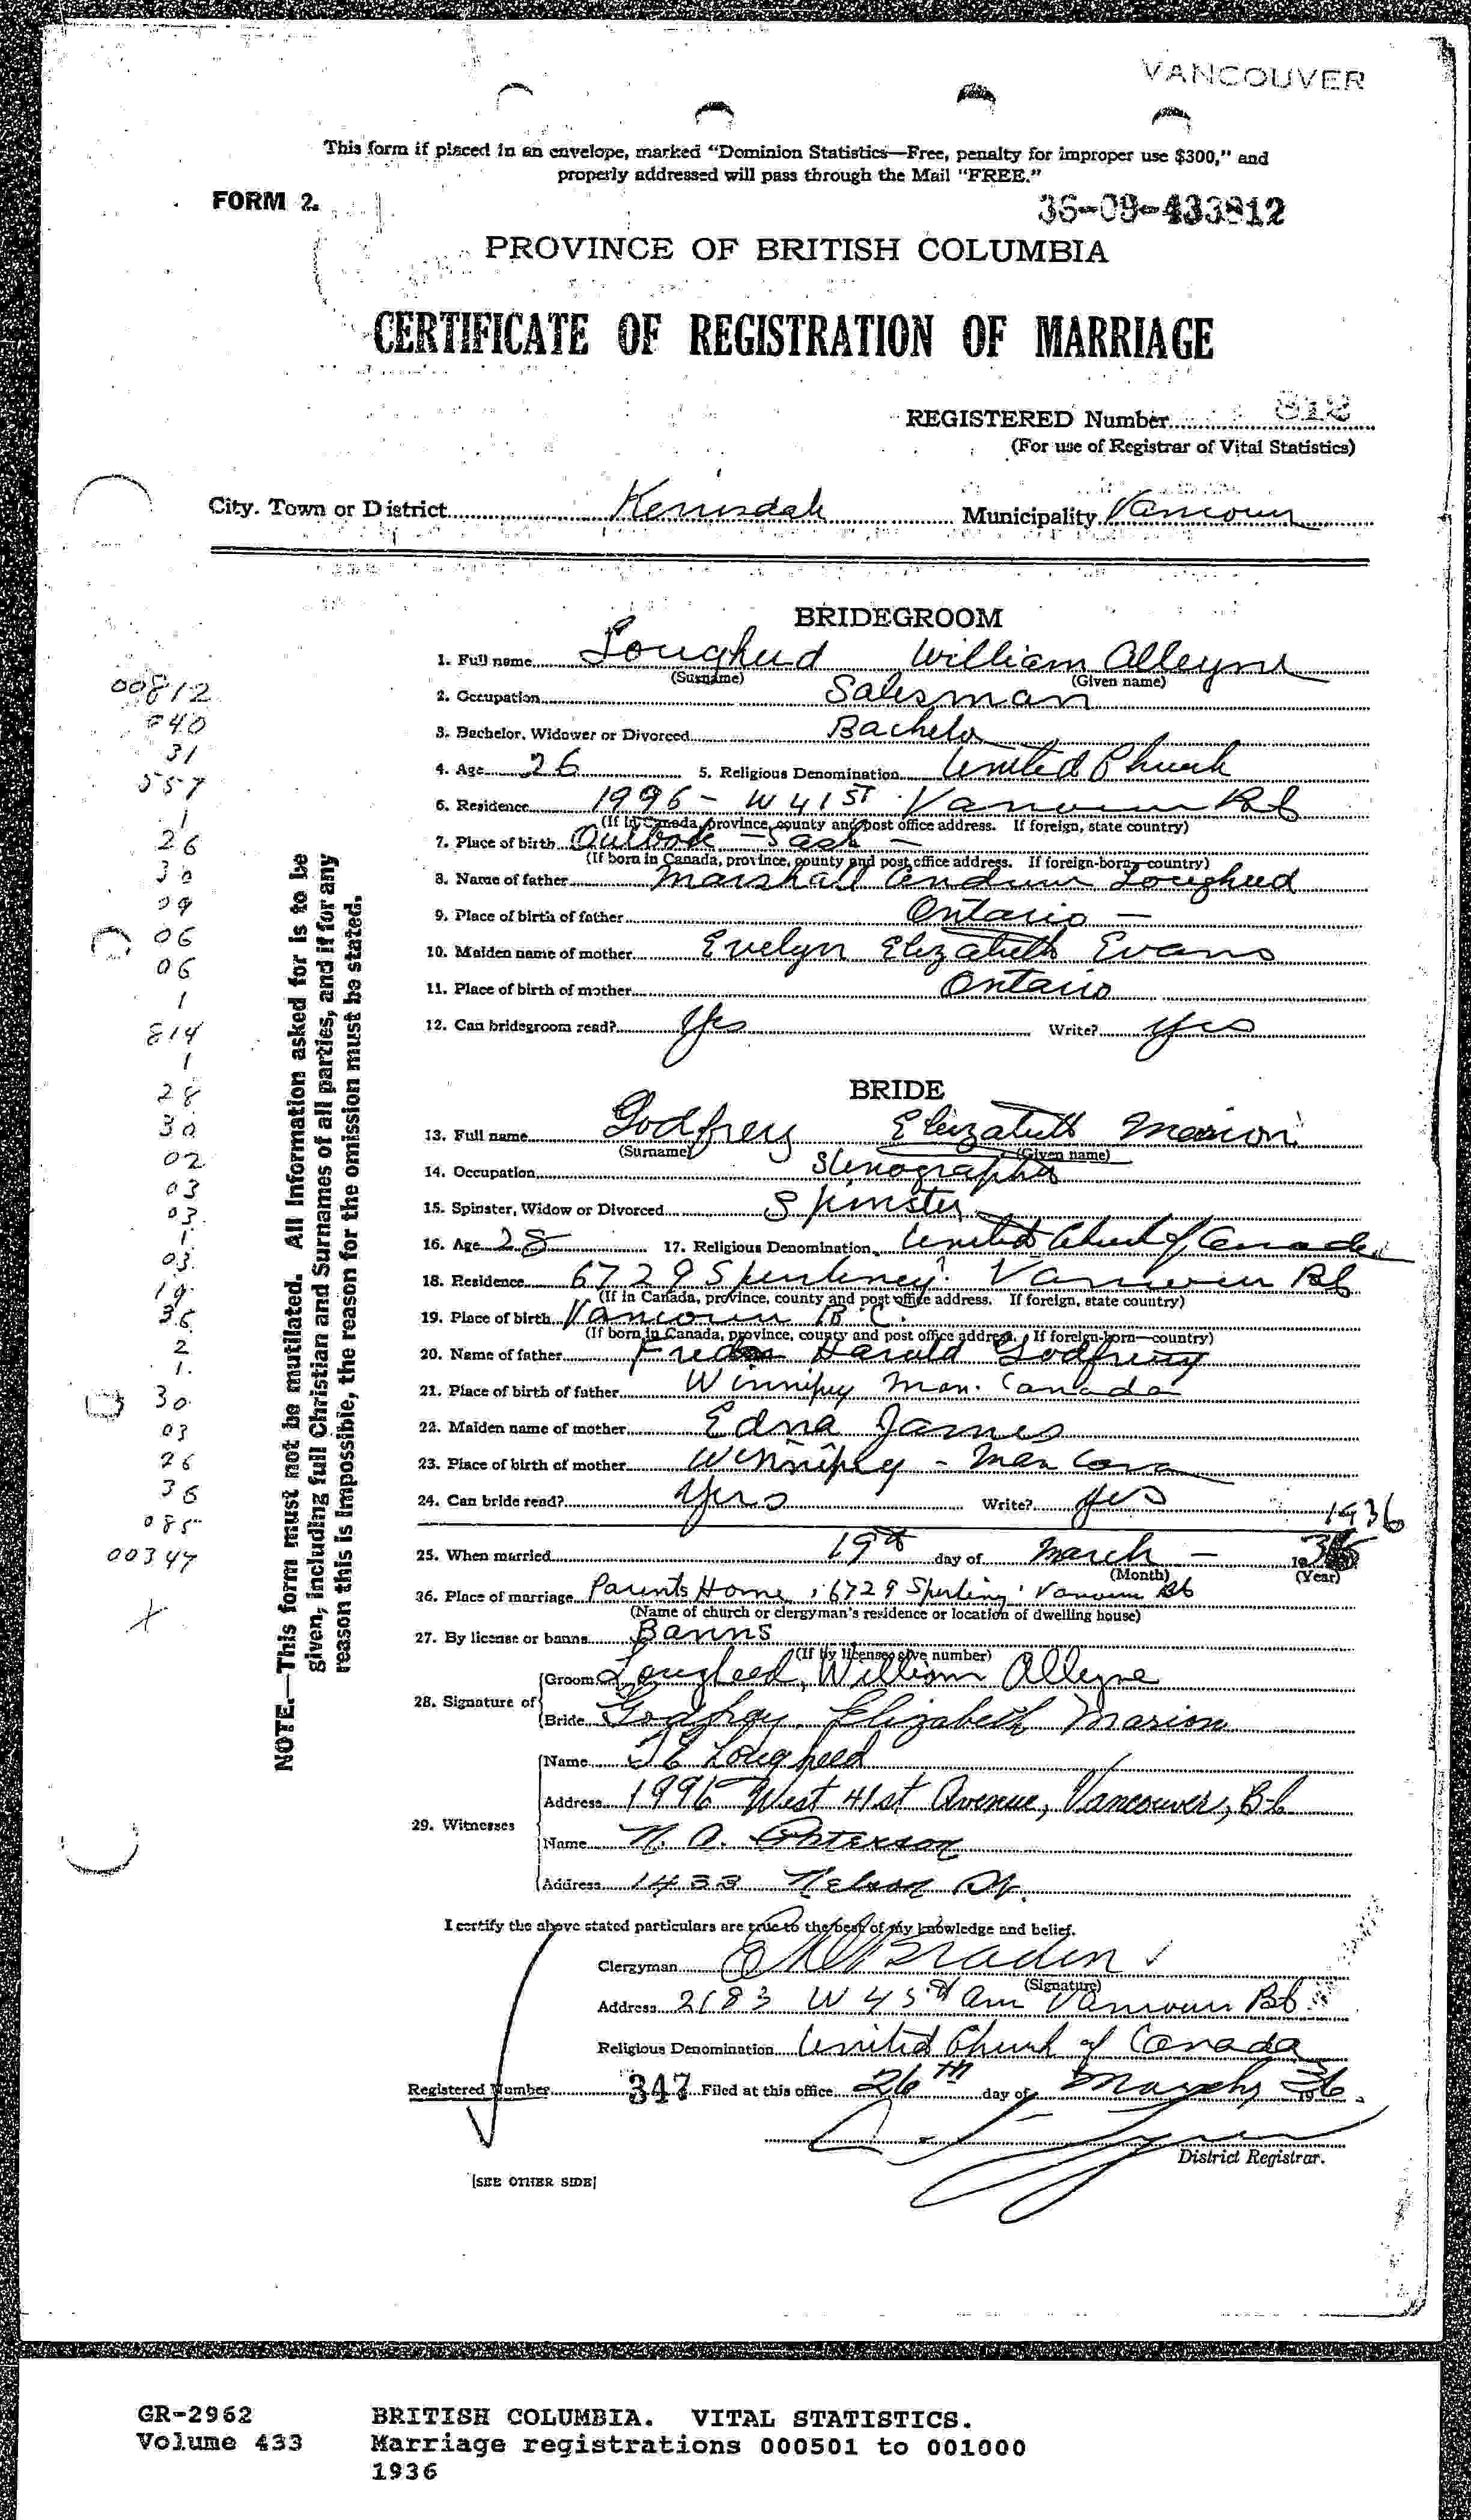 VANCOUVER
This form if placed in an envelope, marked "Dominion Statistics—Free, penalty for improper use $300," and
properly addressed will pass through the Mail "FREE."
FORM 2.
36-09-433812
PROVINCE OF BRITISH COLUMBIA
CERTIFICATE OF REGISTRATION OF MARRIAGE
REGISTERED Number 812
(For use of Registrar of Vital Statistics)
City. Town or District Kerrisdale Municipality Vancouver
BRIDEGROOM
1. Full name Lougheed William Alleyne
(Surname) (Given name)
2. Occupation Salesman
3. Bachelor, Widower or Divorced Bachelor
4. Age 26 5. Religious Denomination United Church
6. Residence 1996 - W 41st Vancouver BC
(If in Canada, province, county and post office address. If foreign, state country)
7. Place of birth Outlook - Sask -
(If born in Canada, province, county and post office address. If foreign-born, country)
8. Name of father Marshall Andrew Lougheed
9. Place of birth of father Ontario -
10. Maiden name of mother Evelyn Elizabeth Evans
11. Place of birth of mother Ontario
12. Can bridegroom read? Yes Write? Yes
BRIDE
13. Full name Godfrey Elizabeth Marion
(Surname) (Given name)
14. Occupation Stenographer
15. Spinster, Widow or Divorced Spinster
16. Age 28 17. Religious Denomination United Church of Canada
18. Residence 6729 Vancouver BC
(If in Canada, province, county and post office address. If foreign, state country)
19. Place of birth Vancouver B C.
(If born in Canada, province, county and post office address. If foreign-born—country)
20. Name of father Harold Godfrey
21. Place of birth of father Winnipeg Man. Canada
22. Maiden name of mother Edna James
23. Place of birth of mother Winnipeg - Man Cana
24. Can bride read? Yes Write? Yes
1936
25. When married 19th day of March - 1936
(Month) (Year)
26. Place of marriage Parents Home, 6729 Sperling, Vancouver BC
(Name of church or clergyman's residence or location of dwelling house)
27. By license or banns Banns
(If by license give number)
28. Signature of
Groom Lougheed, William Alleyne
Bride Godfrey, Elizabeth Marion
29. Witnesses
Name Lougheed
Address 1996 West 41st Avenue, Vancouver, B.C.
Name Paterson
Address 1433 Nelson St.
I certify the above stated particulars are true to the best of my knowledge and belief.
Clergyman Braden
(Signature)
Address 2183 W 45th Ave Vancouver BC
Religious Denomination United Church of Canada
Registered Number 347 Filed at this office 26th day of March 1936.
District Registrar.
[SEE OTHER SIDE]
NOTE.—This form must not be mutilated. All Information asked for is to be
given, including full Christian and Surnames of all parties, and if for any
reason this is impossible, the reason for the omission must be stated.
00812
040
31
557
1
26
30
09
06
06
1
814
1
28
30
02
03
03
1
03
19
36
2
1.
30
03
26
36
085
00347
GR-2962
Volume 433
BRITISH COLUMBIA. VITAL STATISTICS.
Marriage registrations 000501 to 001000
1936